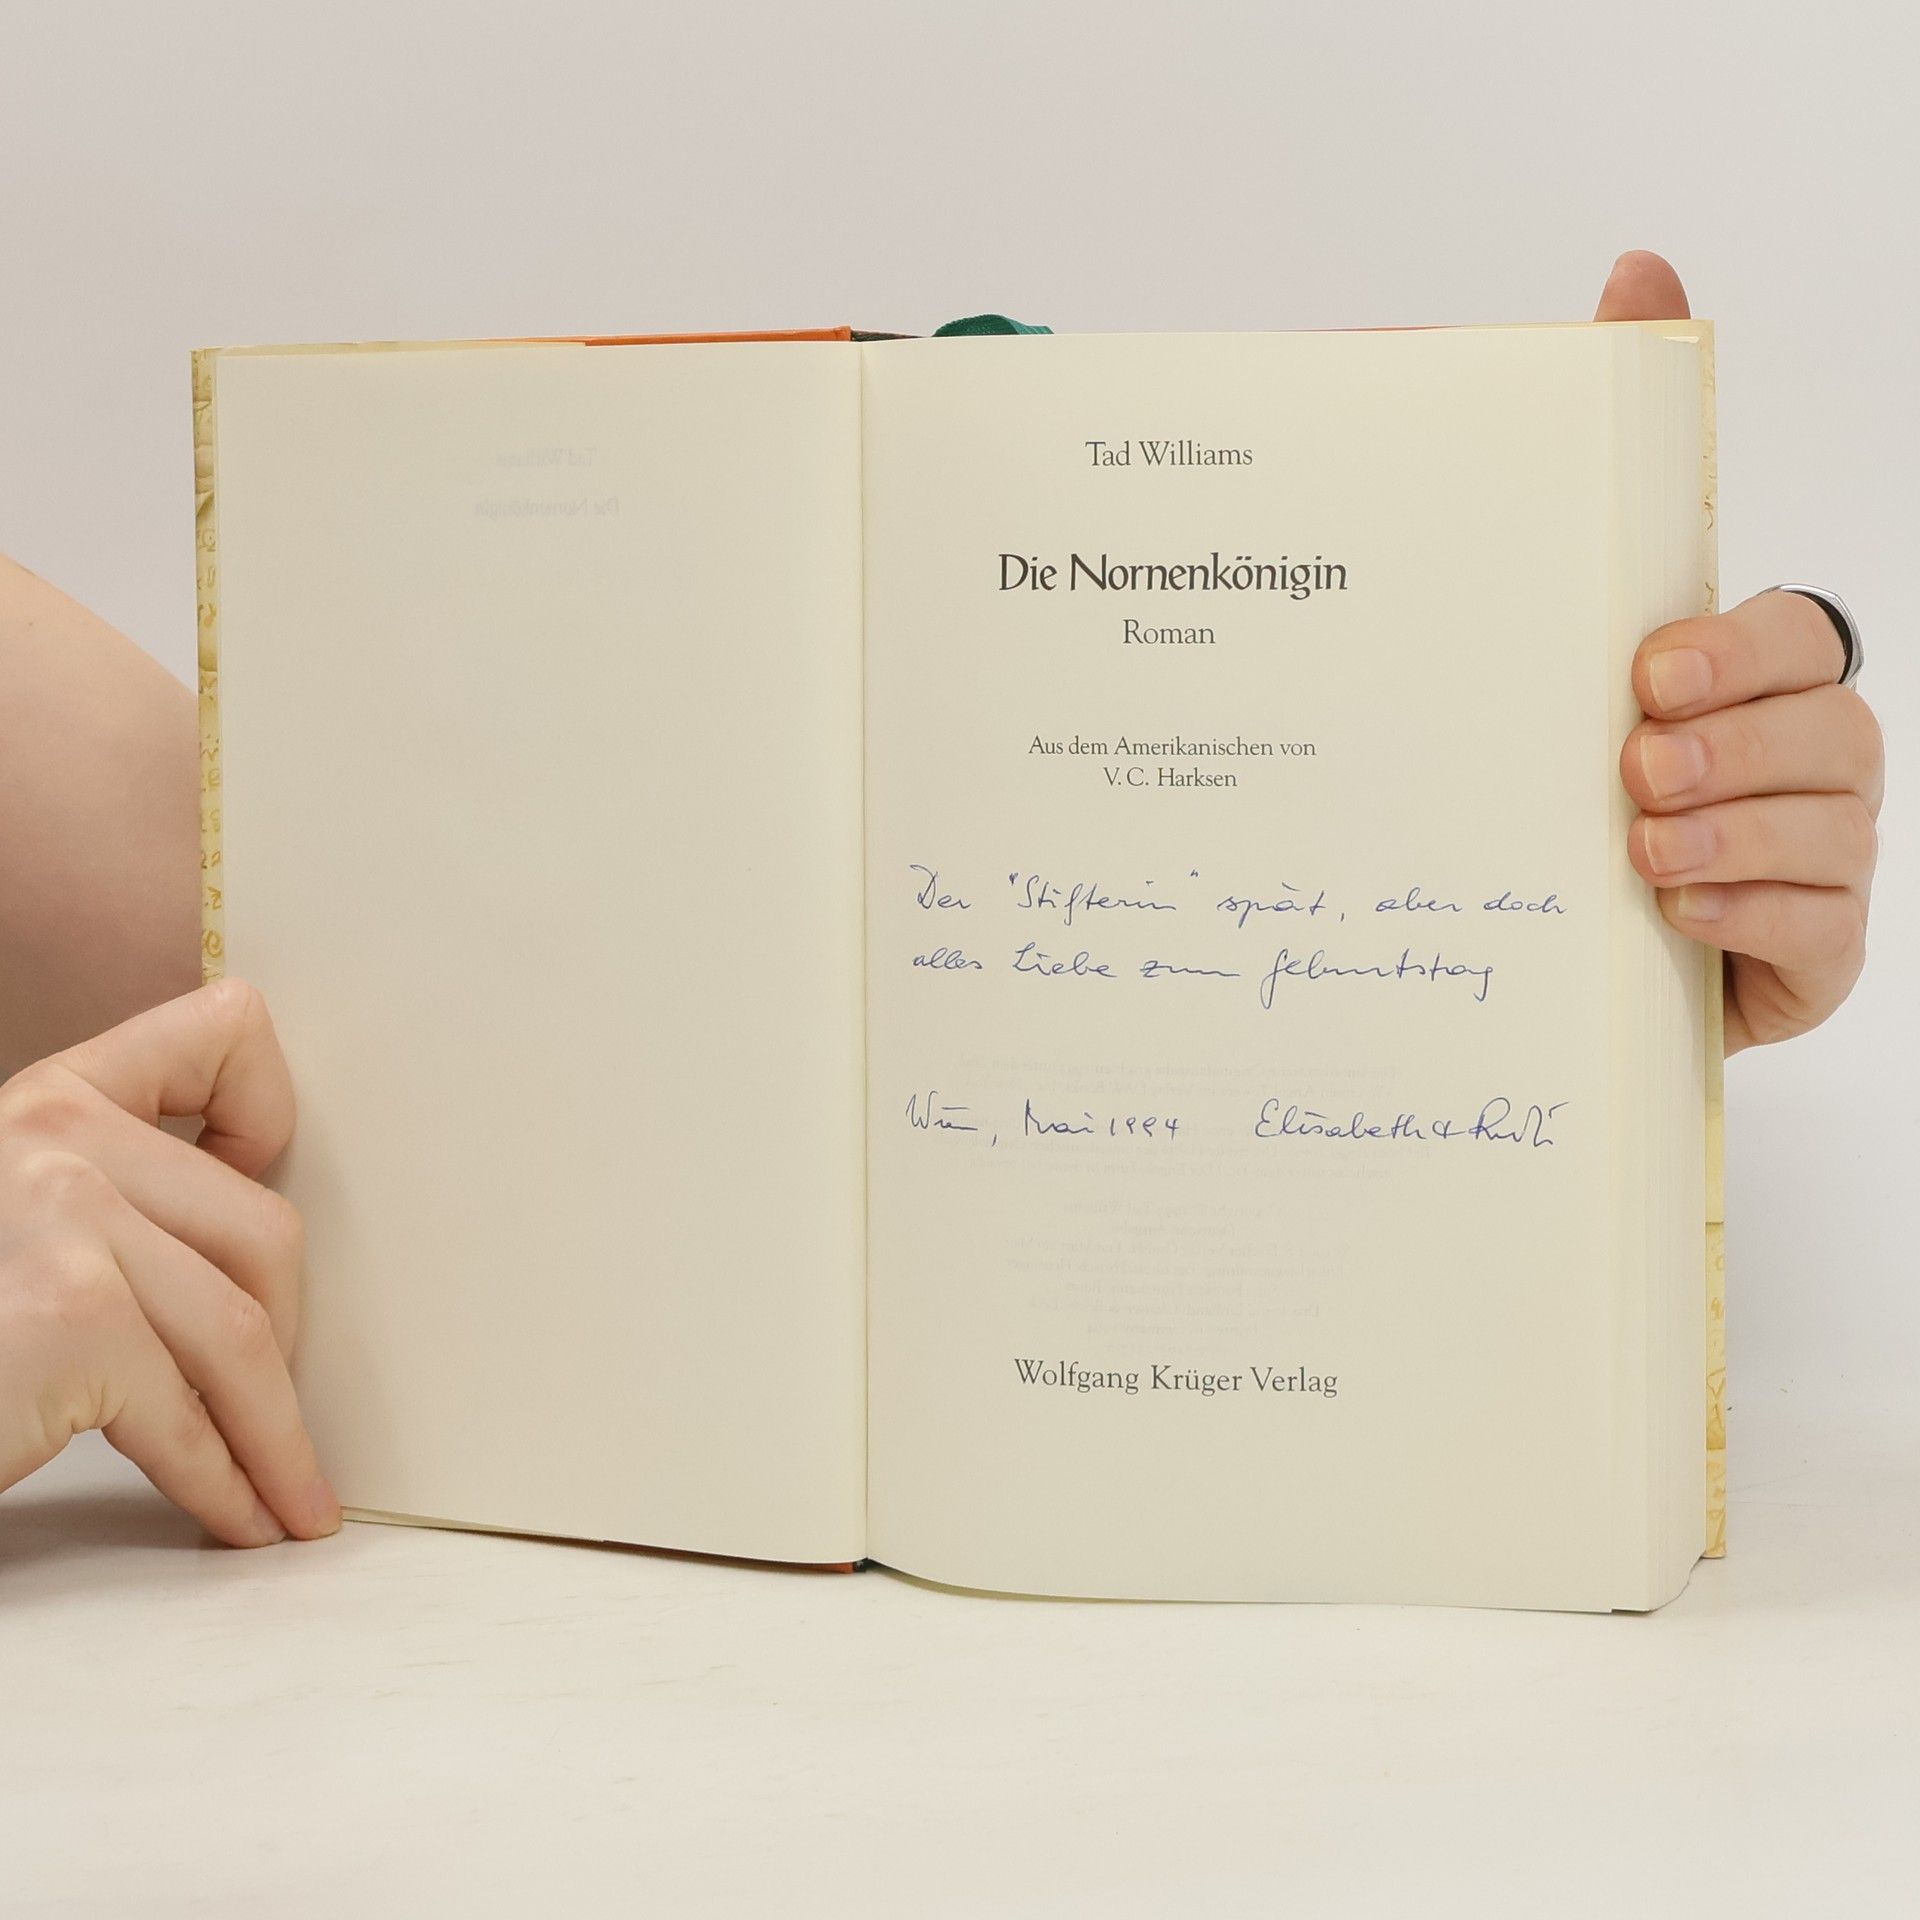 Tad Williams
Die Nornenkönigin
Roman
Aus dem Amerikanischen von
V. C. Harksen
Der "Stifterin" spät, aber doch
alles Liebe zum Geburtstag
Wien, Mai 1994 Elisabeth &
Wolfgang Krüger Verlag